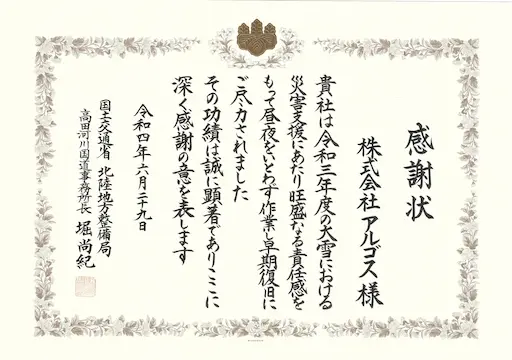 感謝状
株式会社 アルゴス 様
貴社は令和三年度の大雪における
災害支援にあたり旺盛なる責任感を
もって昼夜をいとわず作業し早期復旧に
ご尽力されました
その功績は誠に顕著でありここに
深く感謝の意を表します
令和四年六月二十九日
国土交通省 北陸地方整備局
高田河川国道事務所長 堀 尚紀